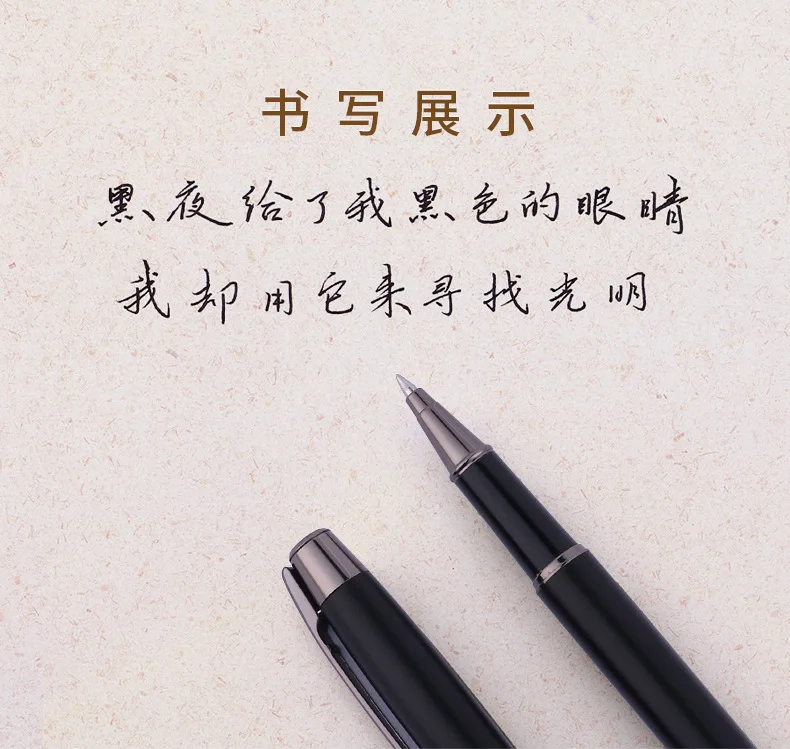 书写展示
黑夜给了我黑色的眼睛
我却用它来寻找光明